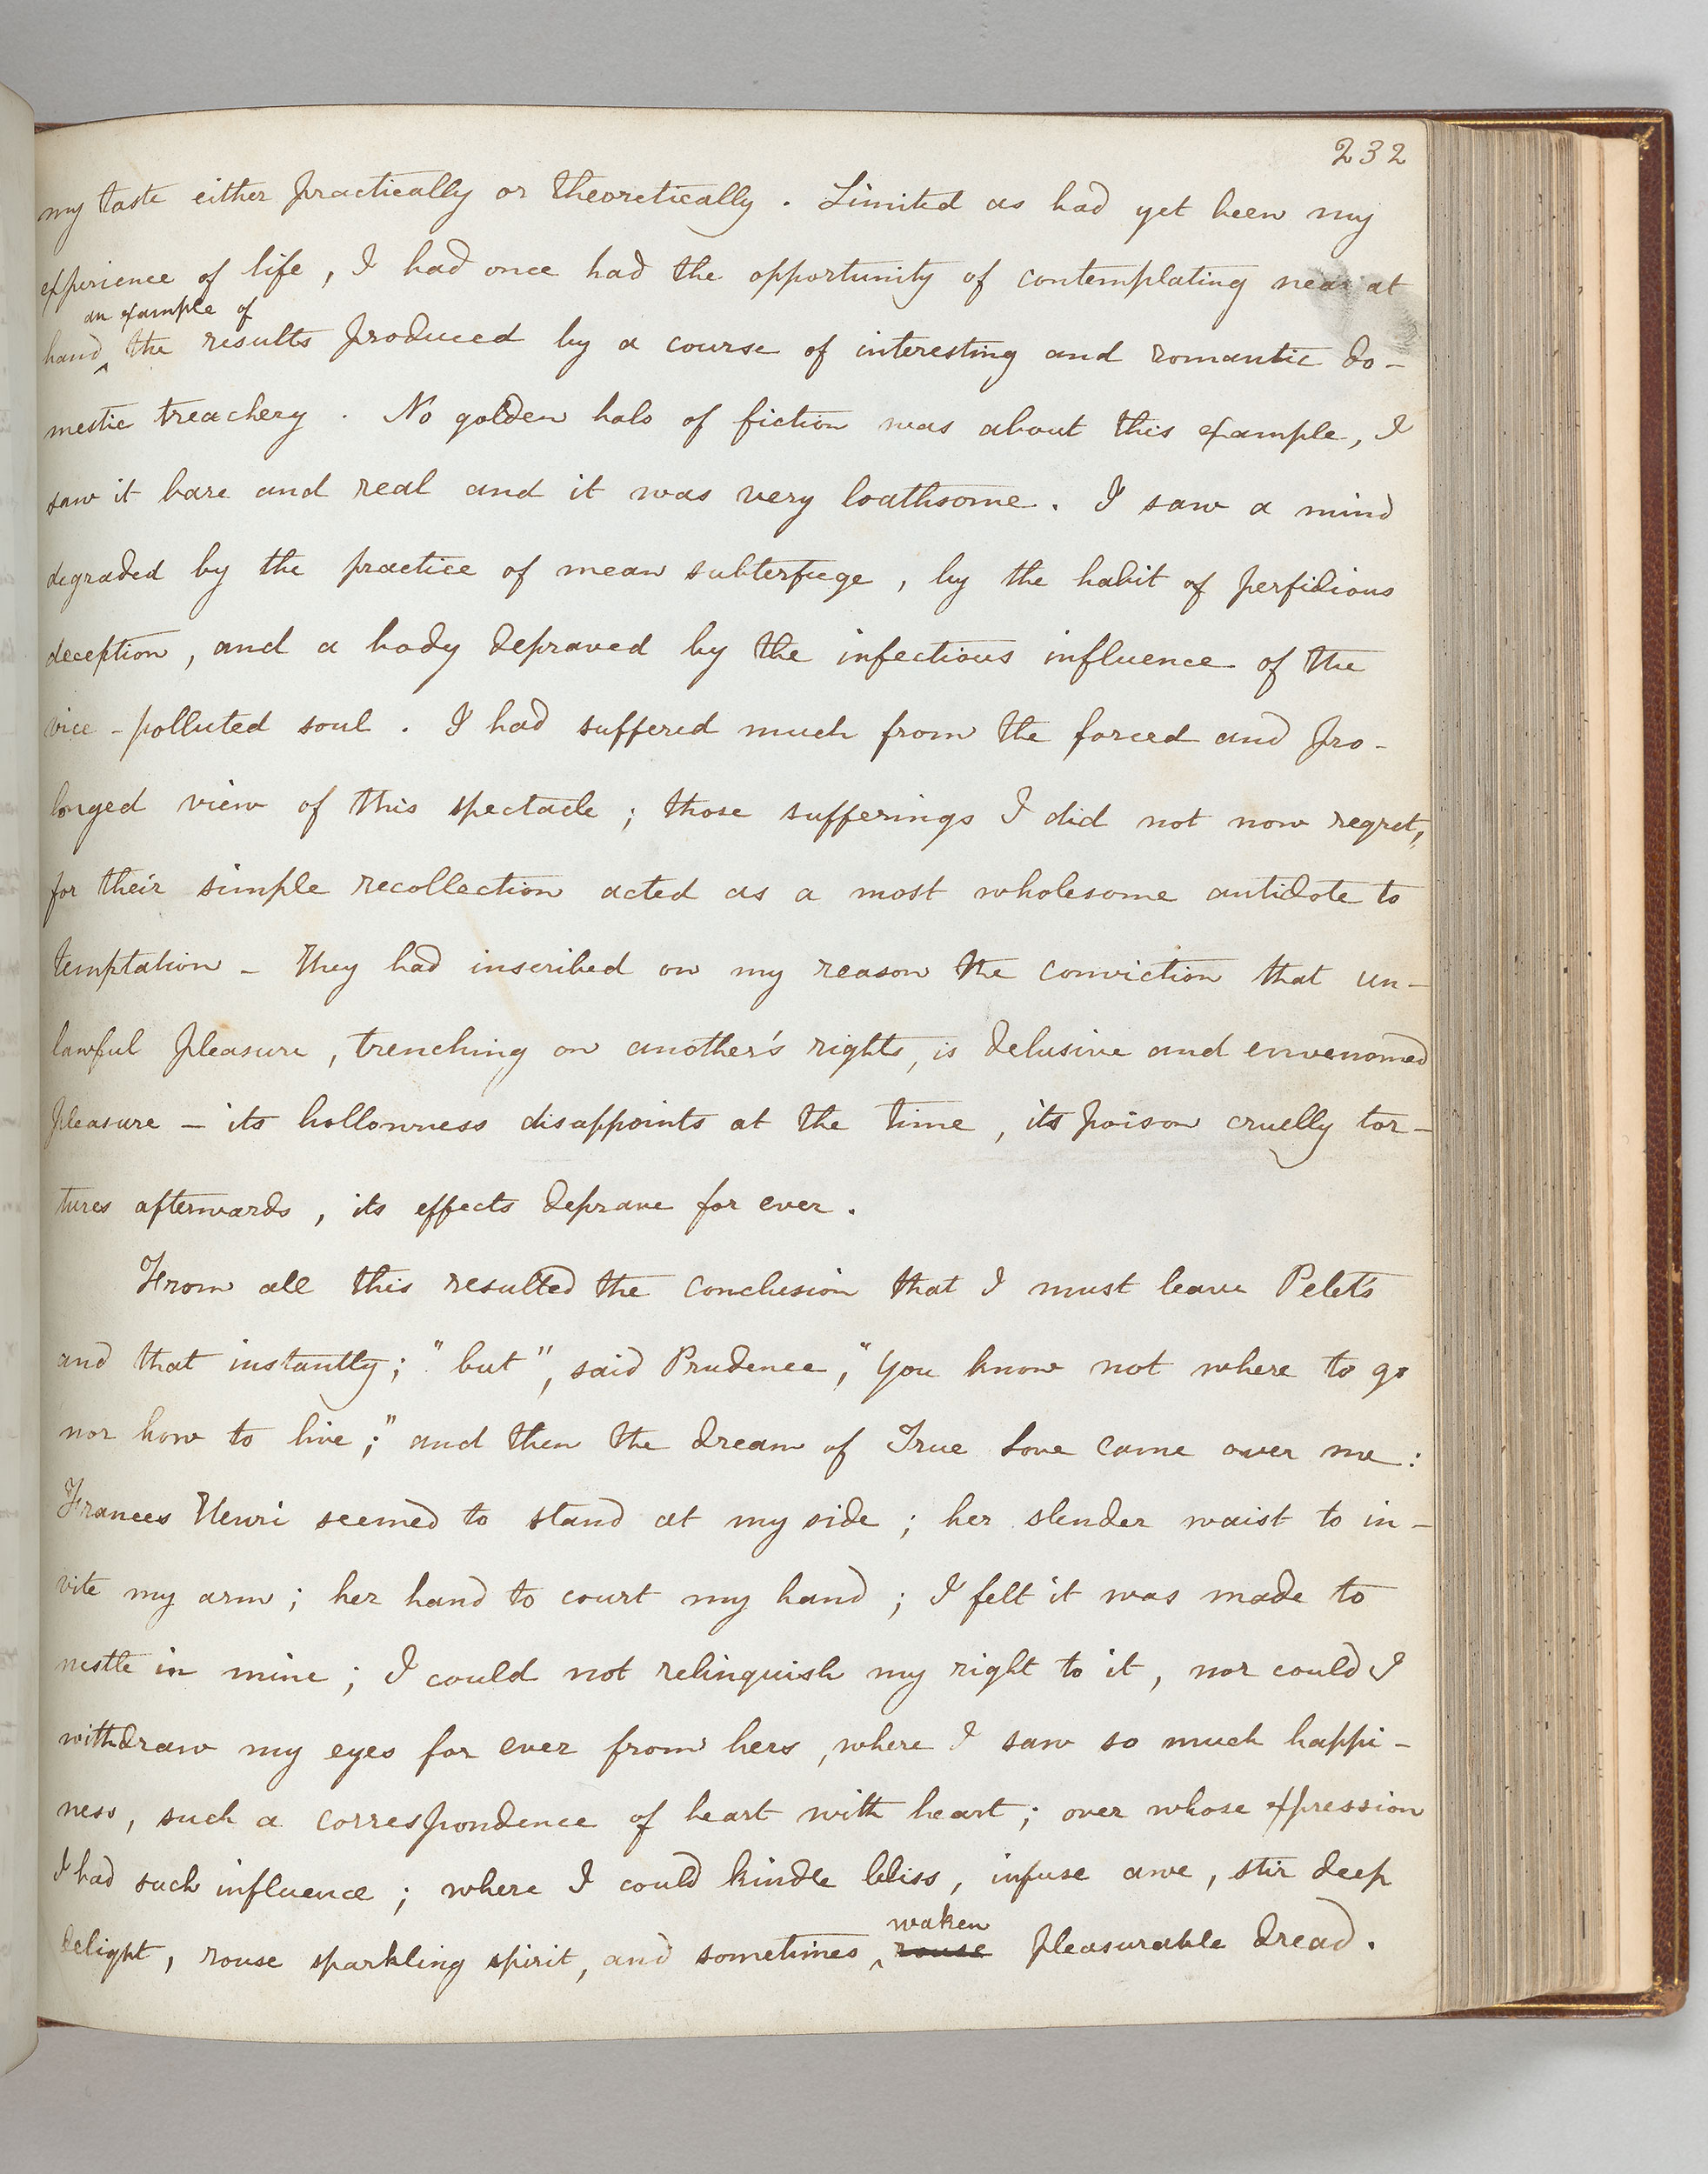 232
my taste either practically or theoretically. Limited as had yet been my
experience of life, I had once had the opportunity of contemplating near at
an example of
hand the results produced by a course of interesting and romantic do-
mestic treachery. No golden halo of fiction was about this example, I
saw it bare and real and it was very loathsome. I saw a mind
degraded by the practice of mean subterfuge, by the habit of perfidious
deception, and a body depraved by the infectious influence of the
vice-polluted soul. I had suffered much from the forced and pro-
longed view of this spectacle; those sufferings I did not now regret,
for their simple recollection acted as a most wholesome antidote to
temptation - They had inscribed on my reason the conviction that un-
lawful pleasure, trenching on another's rights, is delusive and envenomed
pleasure - its hollowness disappoints at the time, its poison cruelly tor-
tures afterwards, its effects deprave for ever.
From all this resulted the conclusion that I must leave Pelet's
and that instantly; "but", said Prudence, "you know not where to go
nor how to live;" and then the dream of True Love came over me:
Frances Henri seemed to stand at my side; her slender waist to in-
vite my arm; her hand to court my hand; I felt it was made to
nestle in mine; I could not relinquish my right to it, nor could I
withdraw my eyes for ever from hers, where I saw so much happi-
ness, such a correspondence of heart with heart; over whose expression
I had such influence; where I could kindle bliss, infuse awe, stir deep
waken
delight, rouse sparkling spirit, and sometimes rouse pleasurable dread.